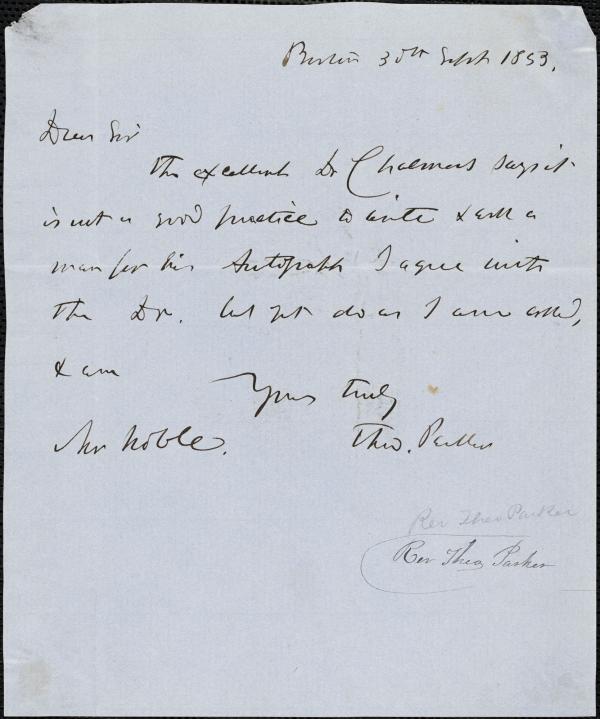 Boston 30th Sept 1853.
Dear Sir
The excellent Dr Chalmers says it
is not a good practice to write & ask a
man for his Autograph I agree with
the Dr. but yet do as I am asked,
& am
Yours truly
Mr Noble. Theo. Parker
Rev Theo Parker
Rev Theo Parker